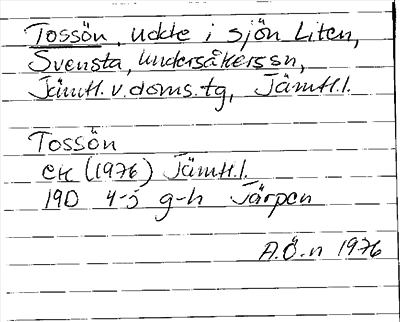 Tossön, udde i sjön Liten,
Svensta, Undersåkers sn,
Jämtl. v. doms. tg, Jämtl. l.
Tossön
ek (1976) Jämtl. l.
19D 4-5 g-h Järpen
A.Ö-n 1976